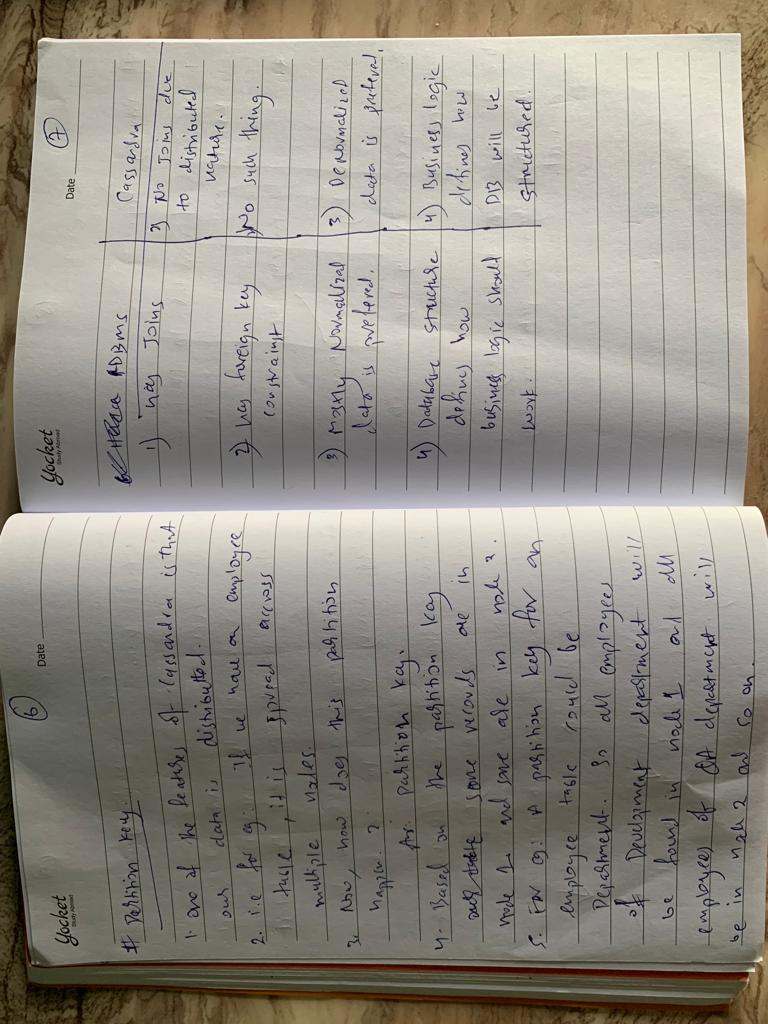 6
Yocket
Study Abroad
Date
# Partition Key.
1. one of the features of Cassandra is that
our data is distributed.
2. i.e for eg: If we have an employee
table, it is spread accross
multiple nodes.
3. Now, how does this partition
happen. ?
Ans: partition key.
4. Based on the partition key
some records are in
node 1 and some are in node 2.
5. For eg: A partition key for an
employee table could be
Department. So all employees
of Development department will
be found in node 1 and all
employees of QA department will
be in node 2 and so on.
7
Yocket
Study Abroad
Date
RDBMS
Cassandra
1) has Joins
1) No Joins due
to distributed
nature.
2) has foreign key
constraint
2) No such thing.
3) Mostly Normalized
data is prefered.
3) DeNormalized
data is prefered.
4) Database structure
defines how
business logic should
work.
4) Business logic
defines how
DB will be
structured.